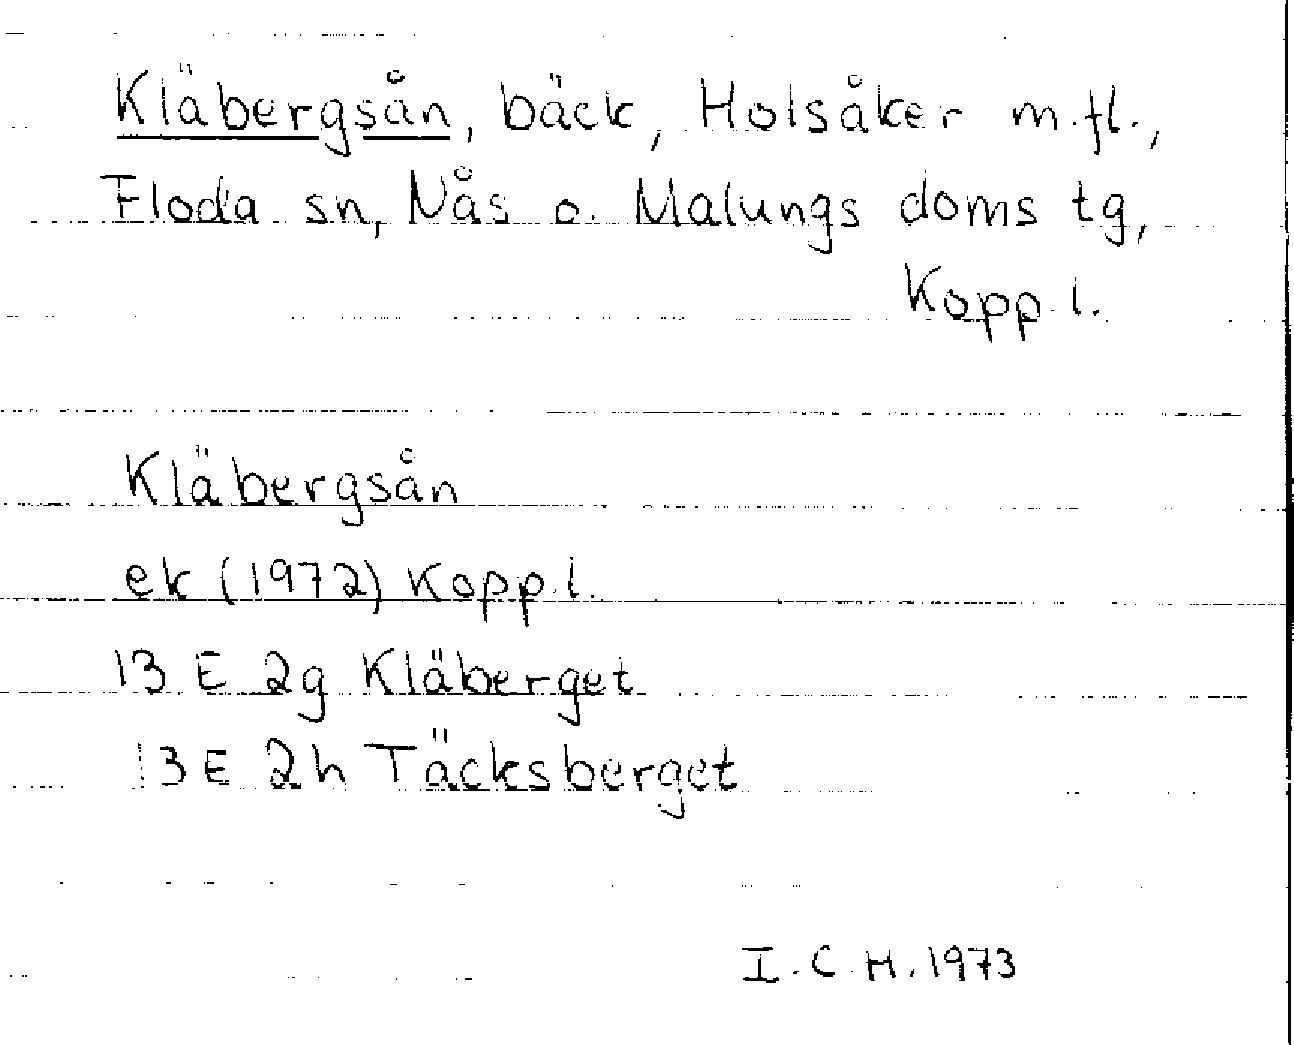 Kläbergsån, bäck, Holsåker m.fl.,
Floda sn, Nås o. Malungs doms tg,
Kopp. l.
Kläbergsån
ek (1972) Kopp. l.
13 E 2g Kläberget
13 E 2h Täcksberget
I. C. H. 1973